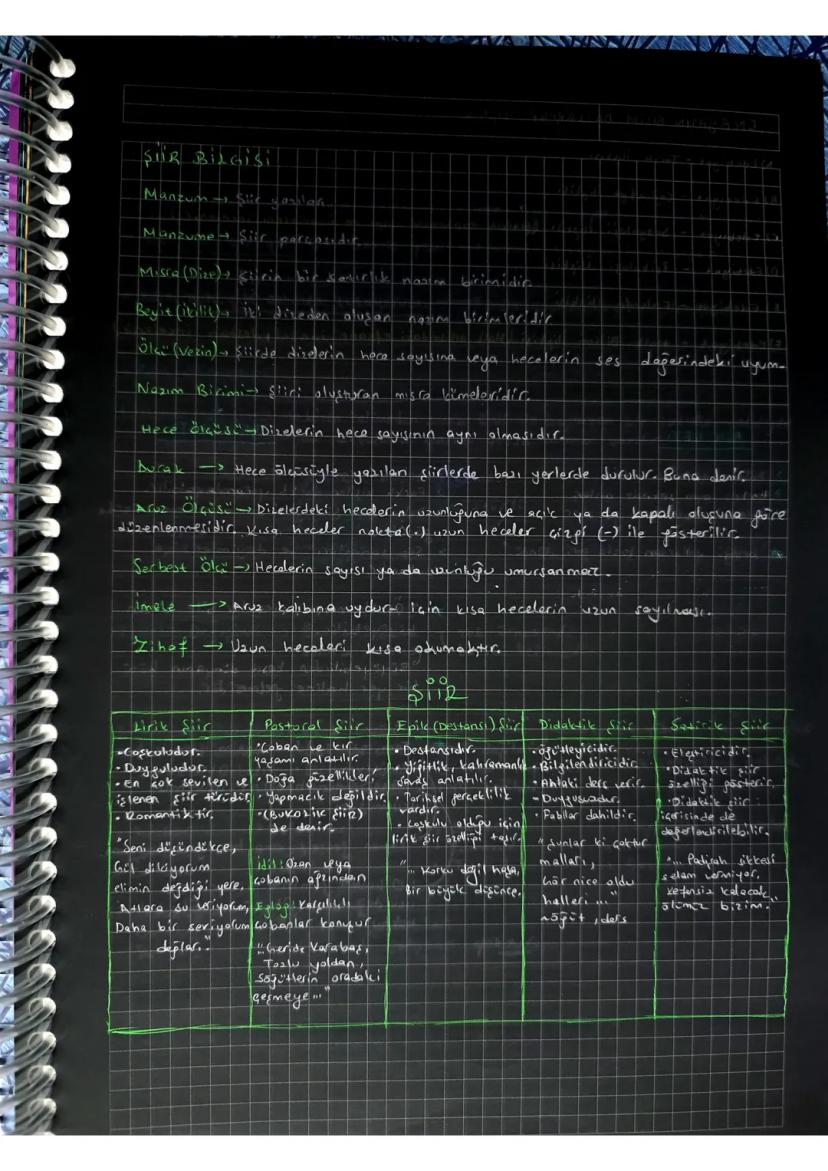 ŞİİR BİLGİSİ
Manzum → Şiir yazıları.
Manzume → Şiir parçasıdır.
Mısra (Dize) → Şiirin bir satırlık nazım birimidir.
Beyit (ikilik) → İki dizeden oluşan nazım birimleridir.
Ölçü (Vezin) → Şiirde dizelerin hece sayısına veya hecelerin ses değerindeki uyum.
Nazım Birimi → Şiiri oluşturan mısra kümeleridir.
Hece Ölçüsü → Dizelerin hece sayısının aynı olmasıdır.
Durak → Hece ölçüsüyle yazılan şiirlerde bazı yerlerde durulur. Buna denir.
Aruz Ölçüsü → Dizelerdeki hecelerin uzunluğuna ve açık ya da kapalı oluşuna göre
düzenlenmesidir. Kısa heceler nokta (.) uzun heceler çizgi (-) ile gösterilir.
Serbest Ölçü → Hecelerin sayısı ya da uzunluğu umursanmaz.
İmele → Aruz kalıbına uydur- için kısa hecelerin uzun sayılması.
Zihaf → Uzun heceleri kısa okumaktır.
ŞİİR
Lirik Şiir
• Coşkuludur.
• Duyguludur.
• En çok sevilen ve
işlenen şiir türüdür.
• Romantiktir.
"Seni düşündükçe,
Gül dikiyorum
elimin değdiği yere,
Atlara su veriyorum,
Daha bir seviyorum
dağlar."
Pastoral Şiir
• Çoban ve kır
yaşamı anlatılır.
• Doğa güzellikleri
• Yapmacık değildir.
• (BUKOLİK ŞİİR)
de denir.
İdil: Ozan veya
çobanın ağzından
Eglog: Karşılıklı
çobanlar konuşur
"Geride Karabaş,
Tozlu yoldan,
Söğütlerin oradaki
çeşmeye..."
Epik (Destansı) Şiir
• Destansıdır.
• Yiğitlik, kahramanlık
savaş anlatılır.
• Tarihsel gerçeklilik
vardır.
• Coşkulu olduğu için
lirik şiir özelliği taşır.
"... Korku değil hala,
Bir büyük düşünce.
Didaktik Şiir
• Öğütleyicidir.
• Bilgilendiricidir.
• Ahlaki ders verir.
- Duygusuzdur.
• Fabllar dahildir.
"Şunlar ki çoktur
malları,
Gör nice oldu
halleri..."
→ öğüt, ders
Satirik Şiir
• Eleştiricidir.
• Didaktik şiir
özelliği gösterir.
• Didaktik şiir
içerisinde de
değerlendirilebilir.
"... Padişah sikkesi
selam vermiyor,
Kefensiz kalacak
ölümüz bizim."